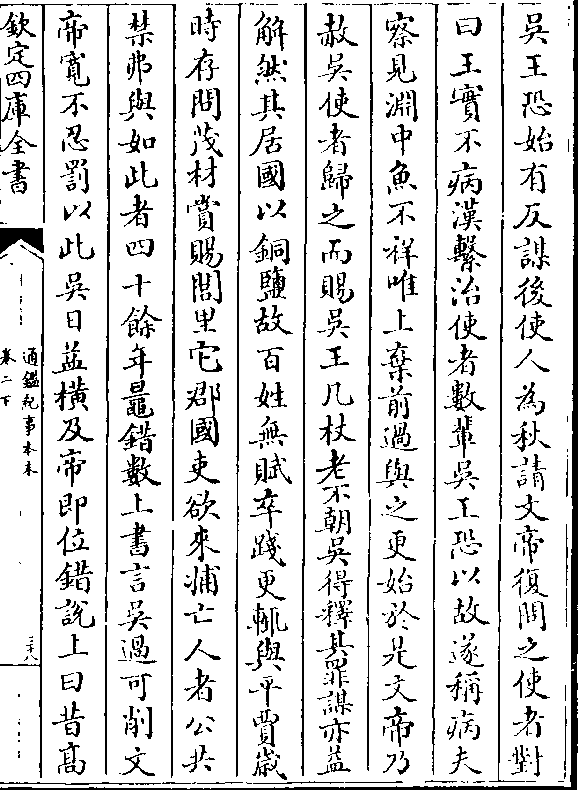 吳王恐始有反謀後使人為秋請文帝復問之使者對
曰王實不病漢繫治使者數輩吳王恐以故遂稱病夫
察見淵中魚不祥唯上棄前過與之更始於是文帝乃
赦吳使者歸之而賜吳王几杖老不朝吳得釋其罪謀亦益
解然其居國以銅鹽故百姓無賦卒踐更輒與平賈歲
時存問茂材賞賜閭里它郡國吏欲來捕亡人者公共
禁弗與如此者四十餘年鼂錯數上書言吳過可削文
帝寬不忍罰以此吳日益橫及帝即位錯說上曰昔高
欽定四庫全書
通鑑紀事本末
卷二下
三十八